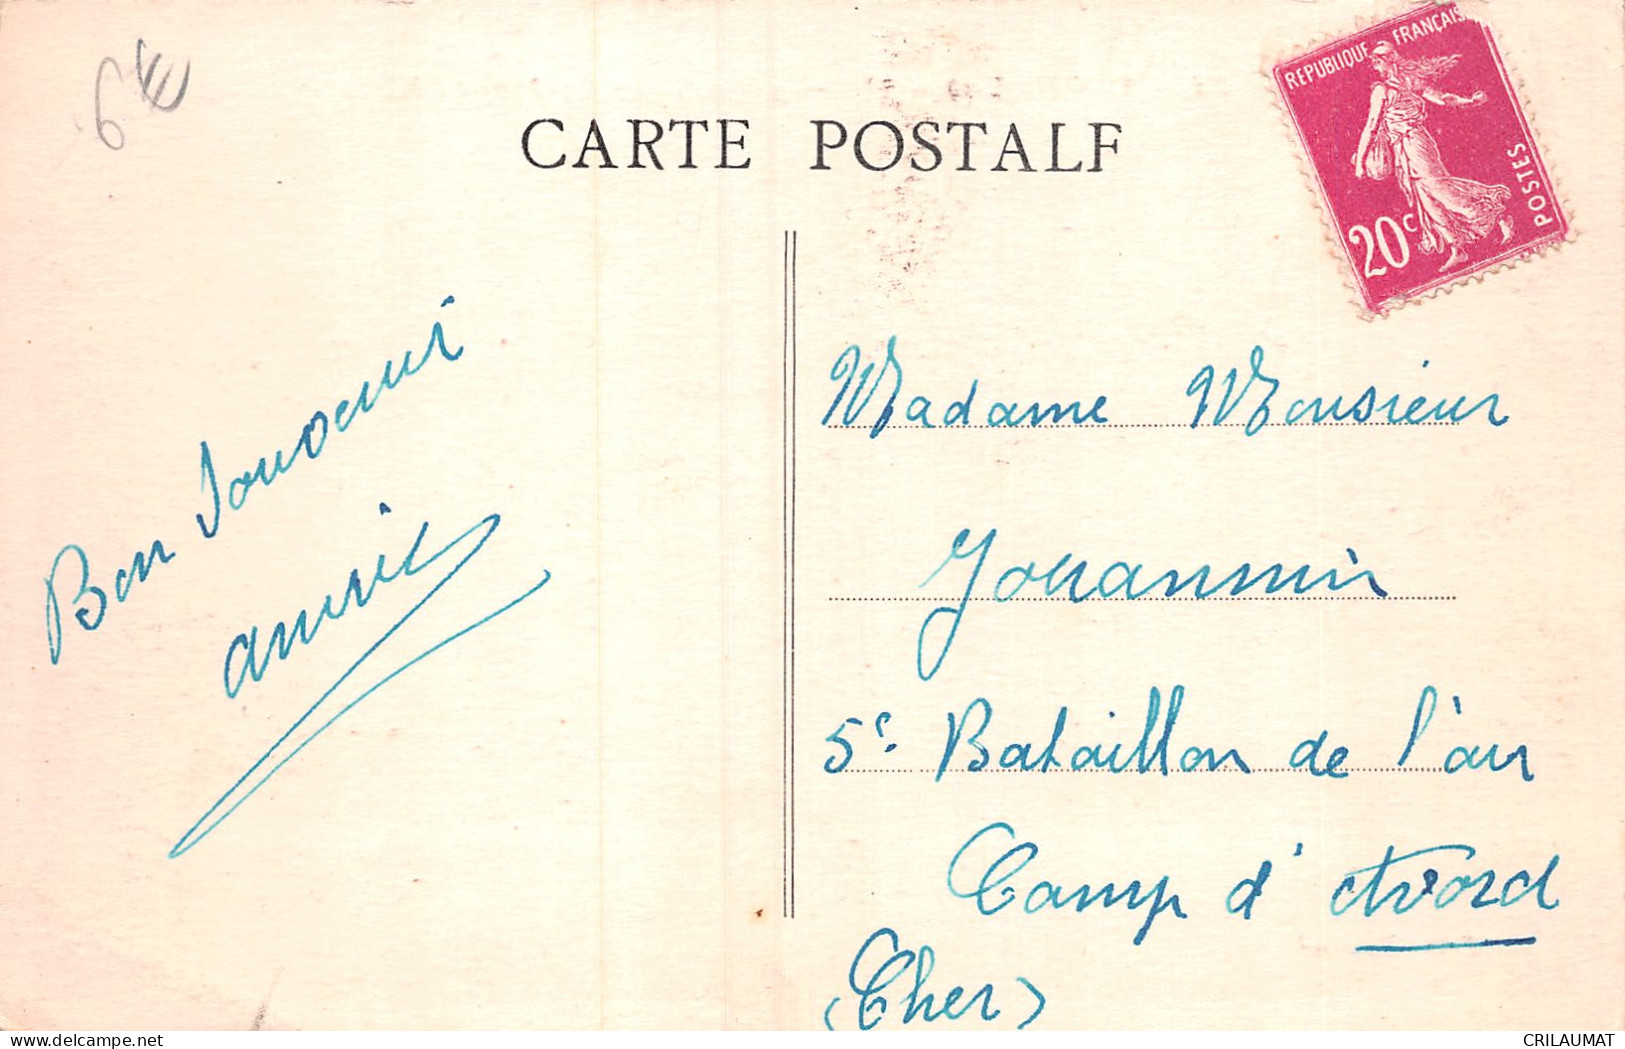 6€
CARTE POSTALE
REPUBLIQUE FRANÇAISE
POSTES
20c
Bon Souvenir
Madame Monsieur
Jouannin
5e Bataillon de l'air
Camp d'Avord
(Cher)
delcampe.net
CRILAUMAT